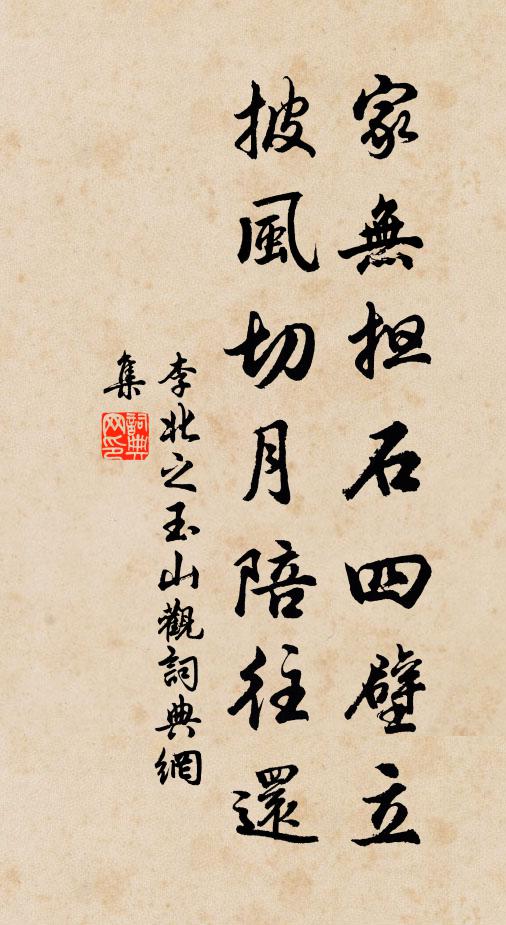 家無担石四壁立
披風切月陪往還
李北之玉山觀詞典網
集
詞典網印